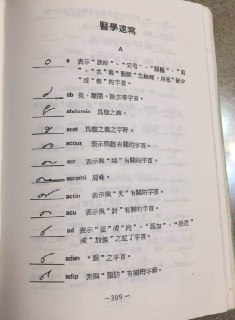 醫學速寫
A
a 表示“調幹”、“安培”、“陽極”、“前
”、“水”、“動脈”之縮寫，用在“缺少
”或“無”的字首。
ab 從，離開，除去等字首。
abdomin 爲腹之義。
acet 爲醋之義之字幹。
acous 表示與聽有關的字首。
acr 表示與“端”有關的字首。
acromi 肩峰。
actin 表示與“光”有關的字首。
acu 表示與“針”有關的字首。
ad 表示“至”或“向”、“添加”、“接近”
或“加強”之拉丁字首。
aden “腺”之字首。
adip 表與“脂肪”有關的字幹。
—309—